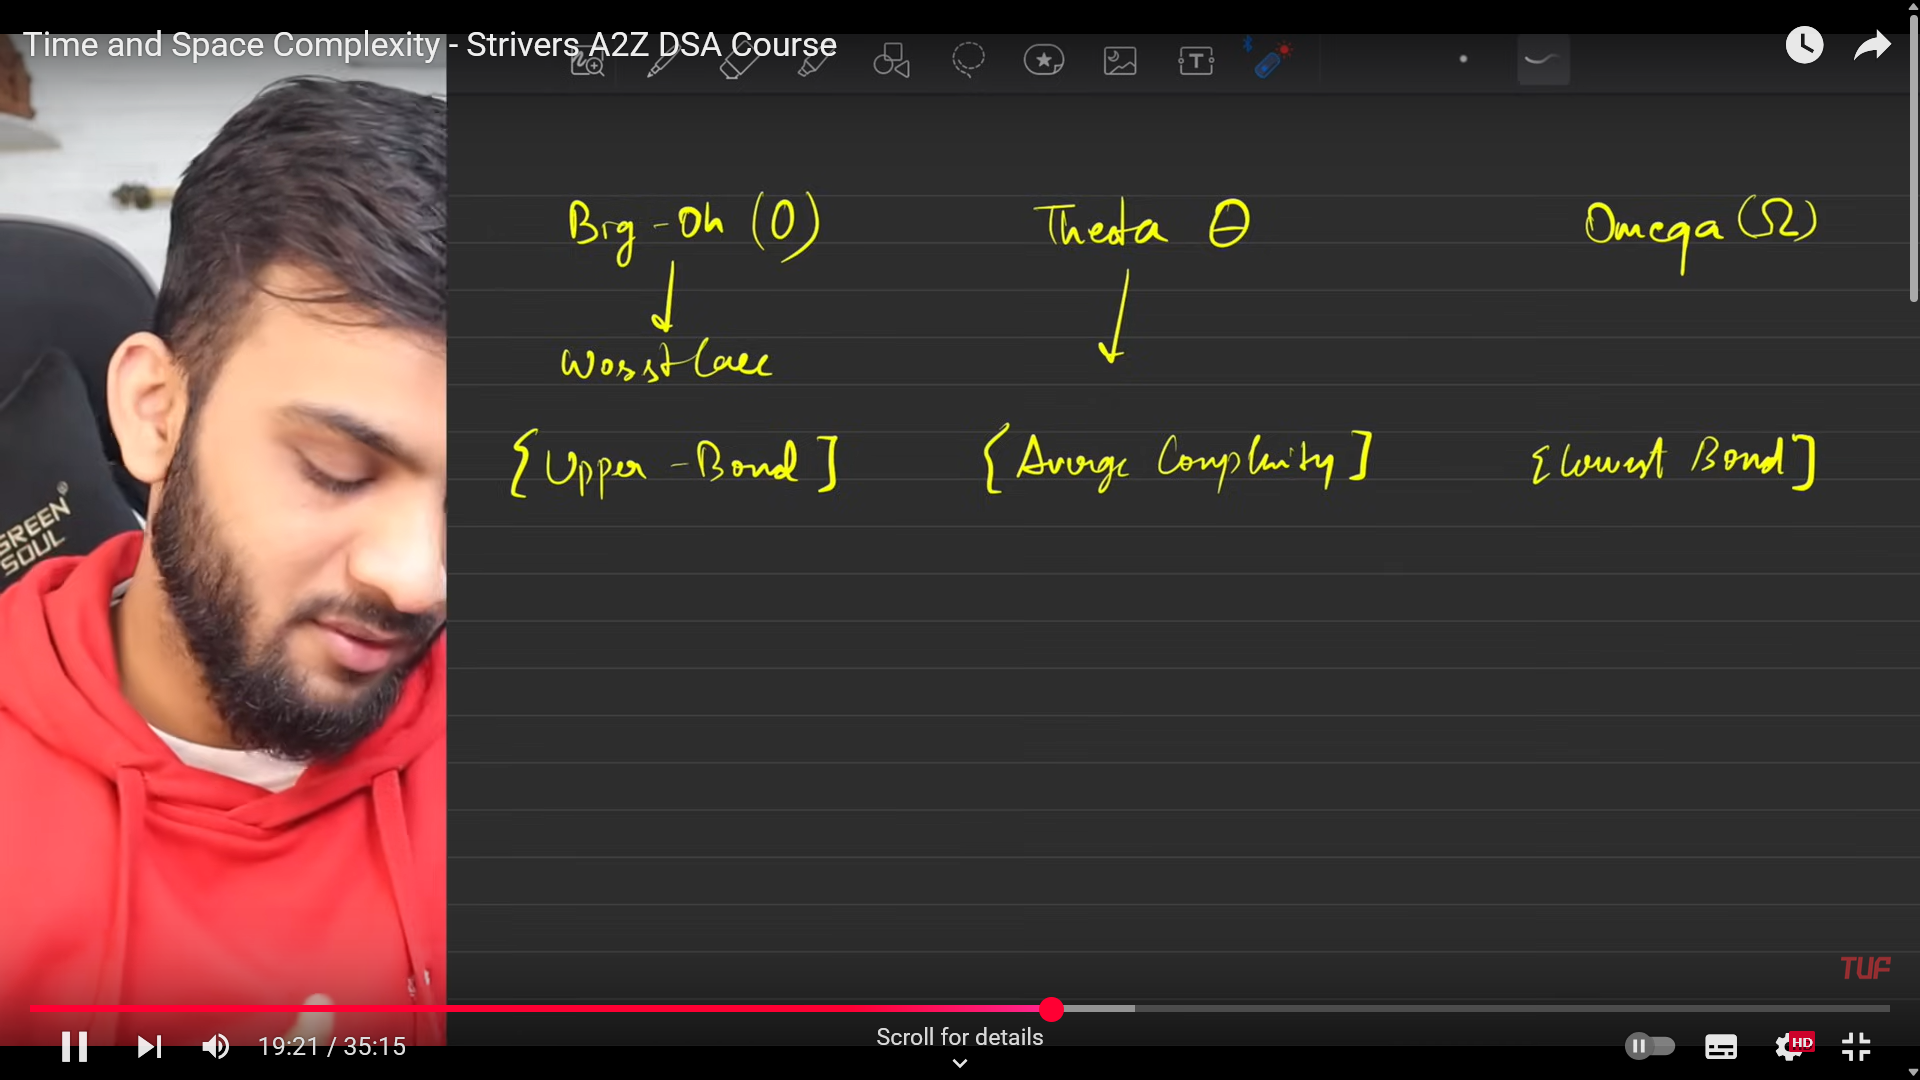 Time and Space Complexity - Strivers A2Z DSA Course
Big-Oh (O)
Theta θ
Omega (Ω)
Worst Case
{Upper-Bond]
{Average Complexity]
{Lowest Bond]
GREEN
SOUL
TUF
19:21 / 35:15
Scroll for details
HD